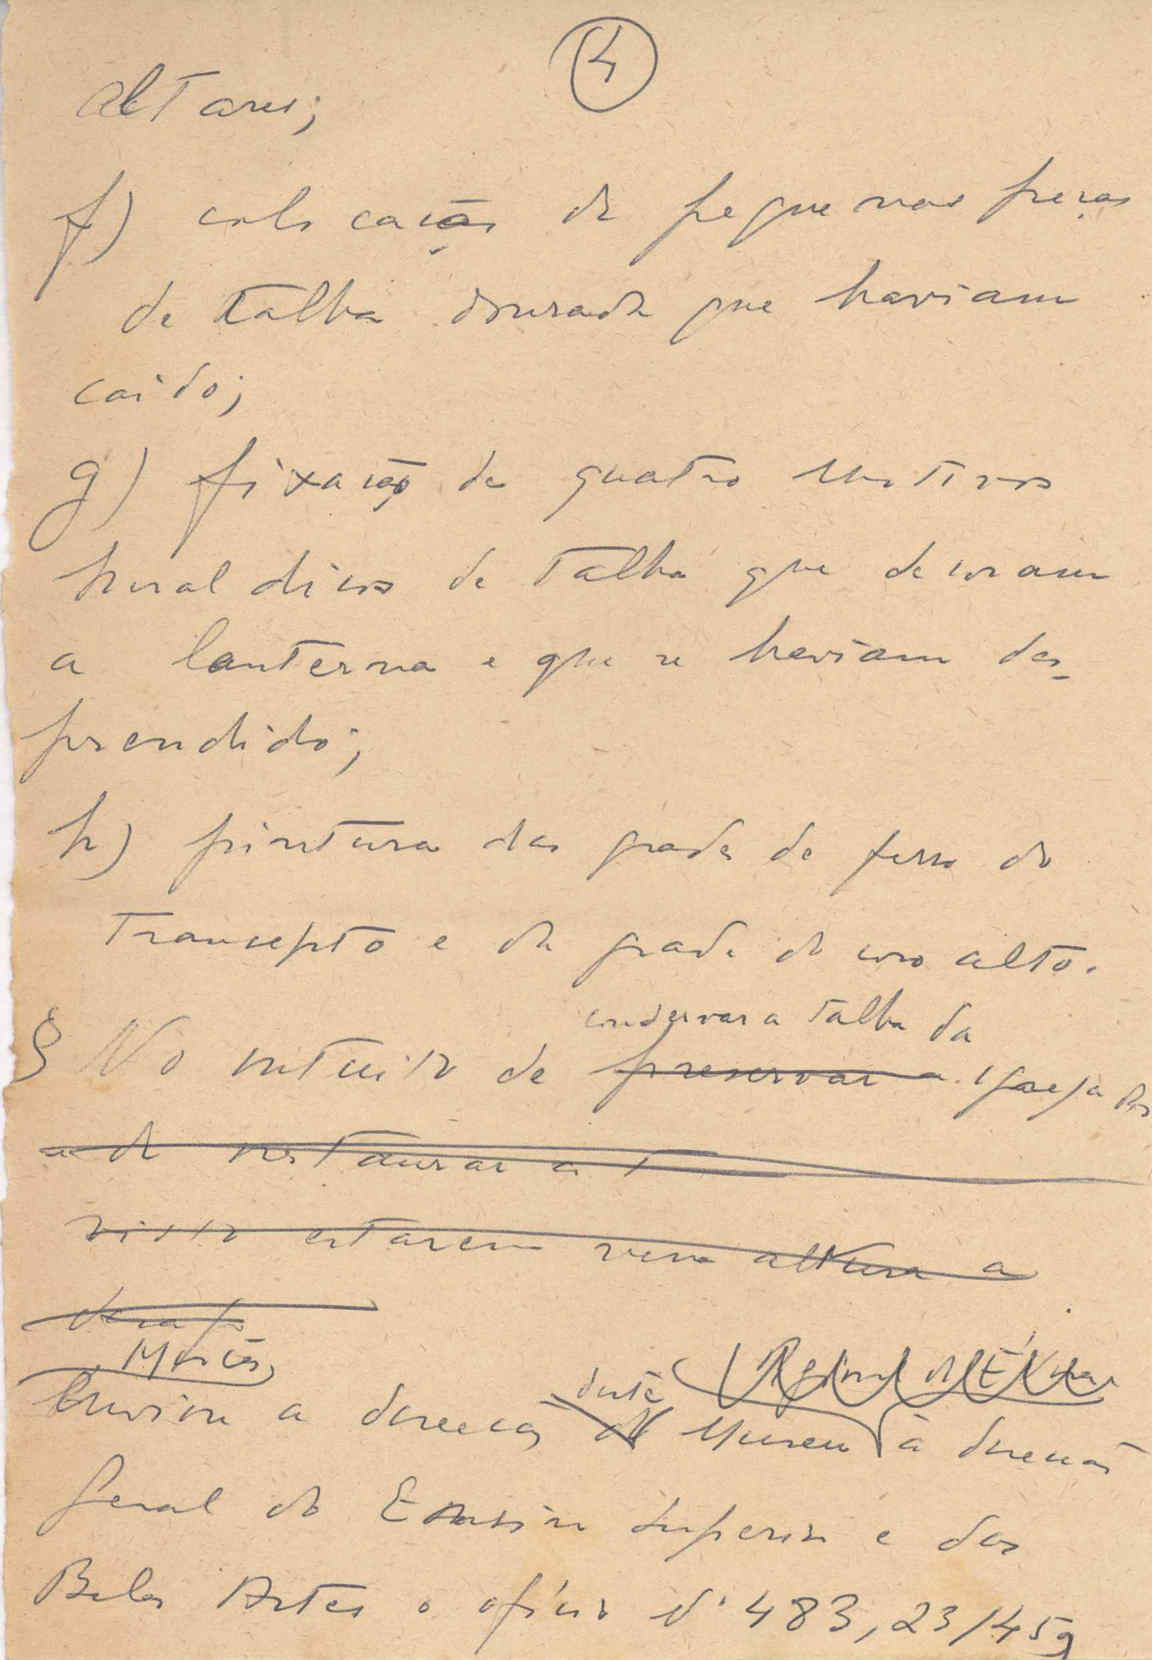 4
altares;
f) colocação de pequenas peças
de talha dourada que haviam
caído;
g) fixação de quatro motivos
heraldicos de talha que decoram
a lanterna e que se haviam des-
prendido;
h) pintura das grades de ferro do
transepto e da grade do coro alto.
conservar a talha da
§ No intuito de preservar a igreja das
e de restaurar a t
visto estarem nessa altura a
Mercês,
deste Regional de Évora
Enviou a direcção do Museu à direcção
geral do Ensino Superior e das
Belas Artes o ofício Nº 483, 23/459